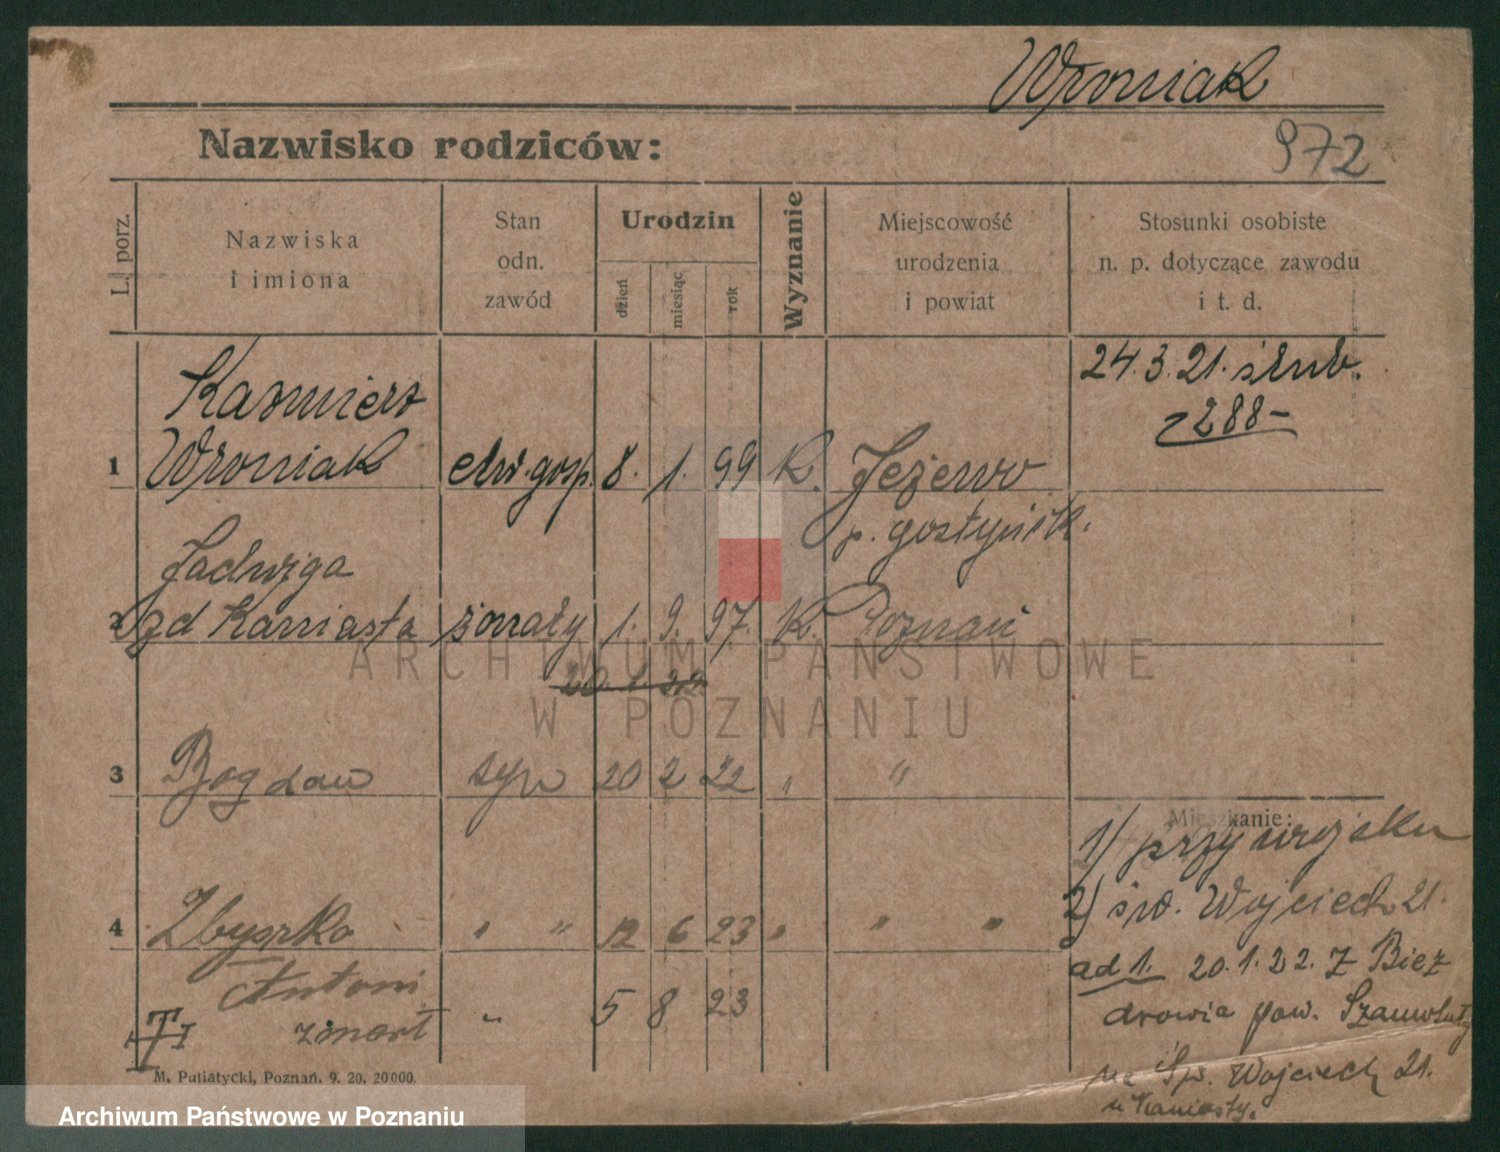 Wroniak
Nazwisko rodziców:
972
L. porz.
Nazwiska
i imiona
Stan
odn.
zawód
Urodzin
dzień
miesiąc
rok
Wyznanie
Miejscowość
urodzenia
i powiat
Stosunki osobiste
n. p. dotyczące zawodu
i t. d.
24.3.21. ślub.
288-
Kazmierz
1 Wroniak gosp. 8. 1. 99 K. Jeżewo
p. gostyńsk.
Jadwiga
2 zd Kaniasta 1. 9. 97. K. Poznań
20. 1. 22.
3 Bogdan syn 20 2 22 " "
Mieszkanie:
1) przy wojsku
4 Zbyszko " " 12 6 23 " " "
2) św. Wojciech 21.
Antoni
zmarł " 5 8 23
ad 1. 20.1.22. Z Biez
drowia pow. Szamotuły
na Św. Wojciech 21.
u Kaniasty.
M. Putiatycki, Poznań. 9. 20. 20000.
ARCHIWUM PAŃSTWOWE
W POZNANIU
Archiwum Państwowe w Poznaniu